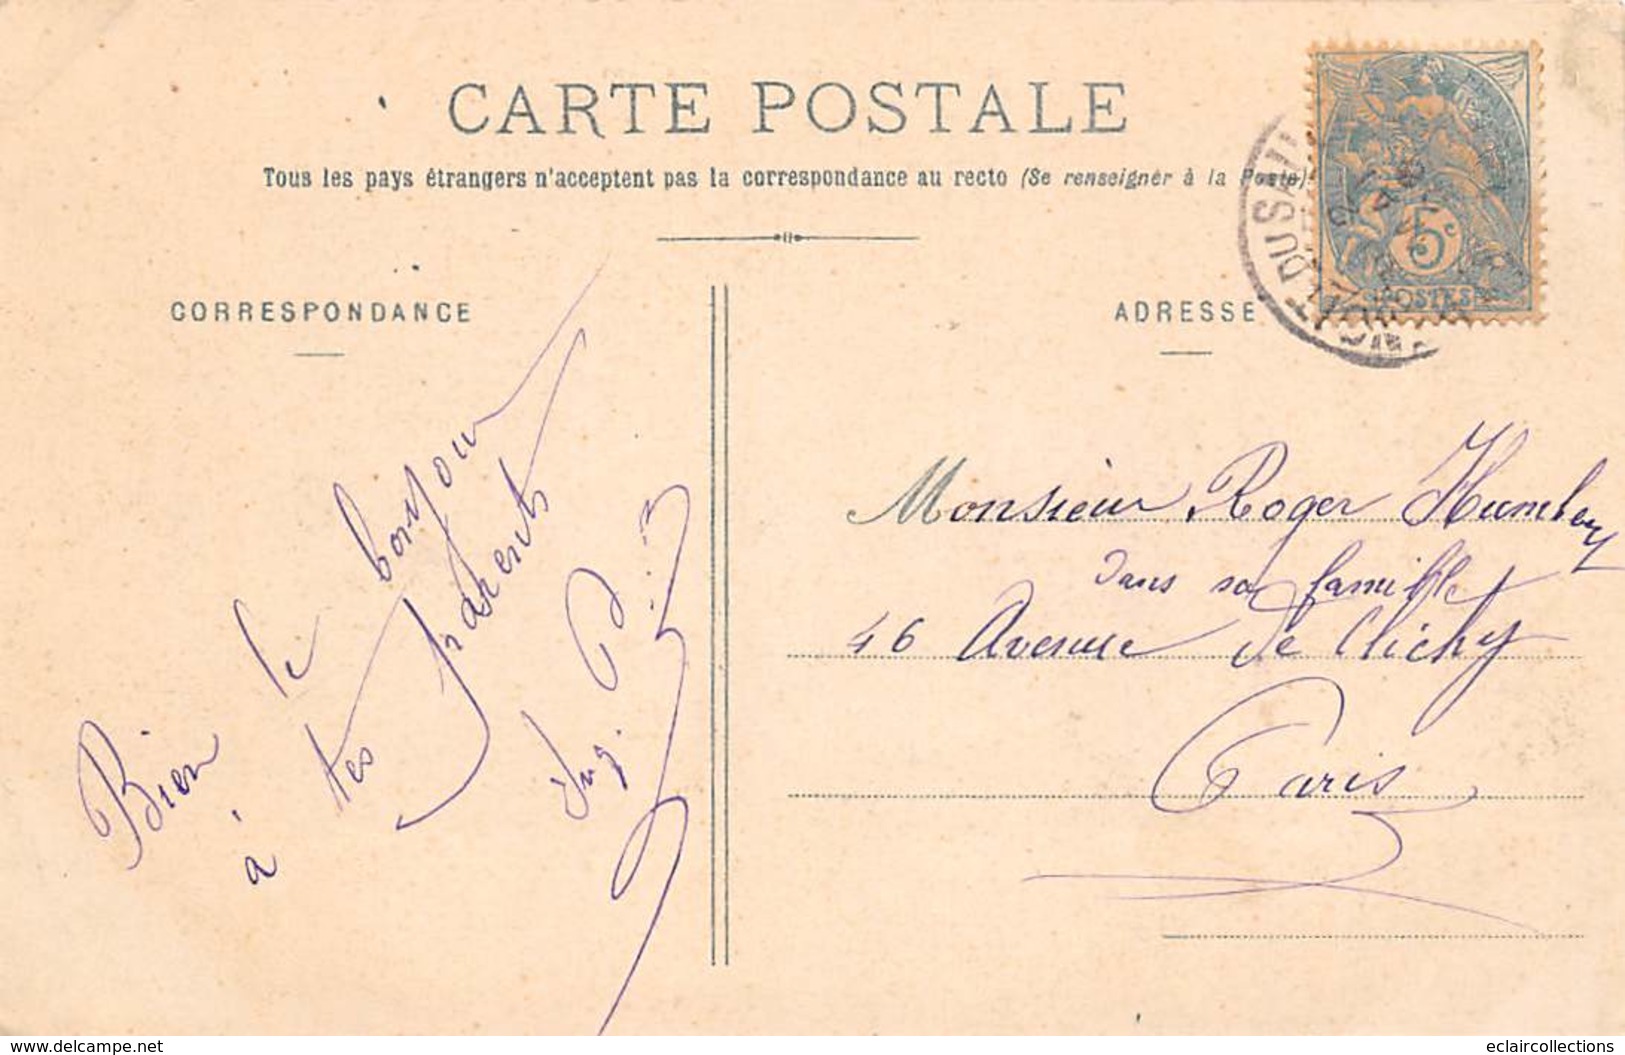 CARTE POSTALE
Tous les pays étrangers n'acceptent pas la correspondance au recto (Se renseigner à la Poste)
CORRESPONDANCE
ADRESSE
5c
POSTES
DU SAU
Bien le bonjour
à tes parents
Aug. P.
Monsieur Roger Humbey
dans sa famille
46 Avenue de Clichy
Paris
www.delcampe.net
eclaircollections